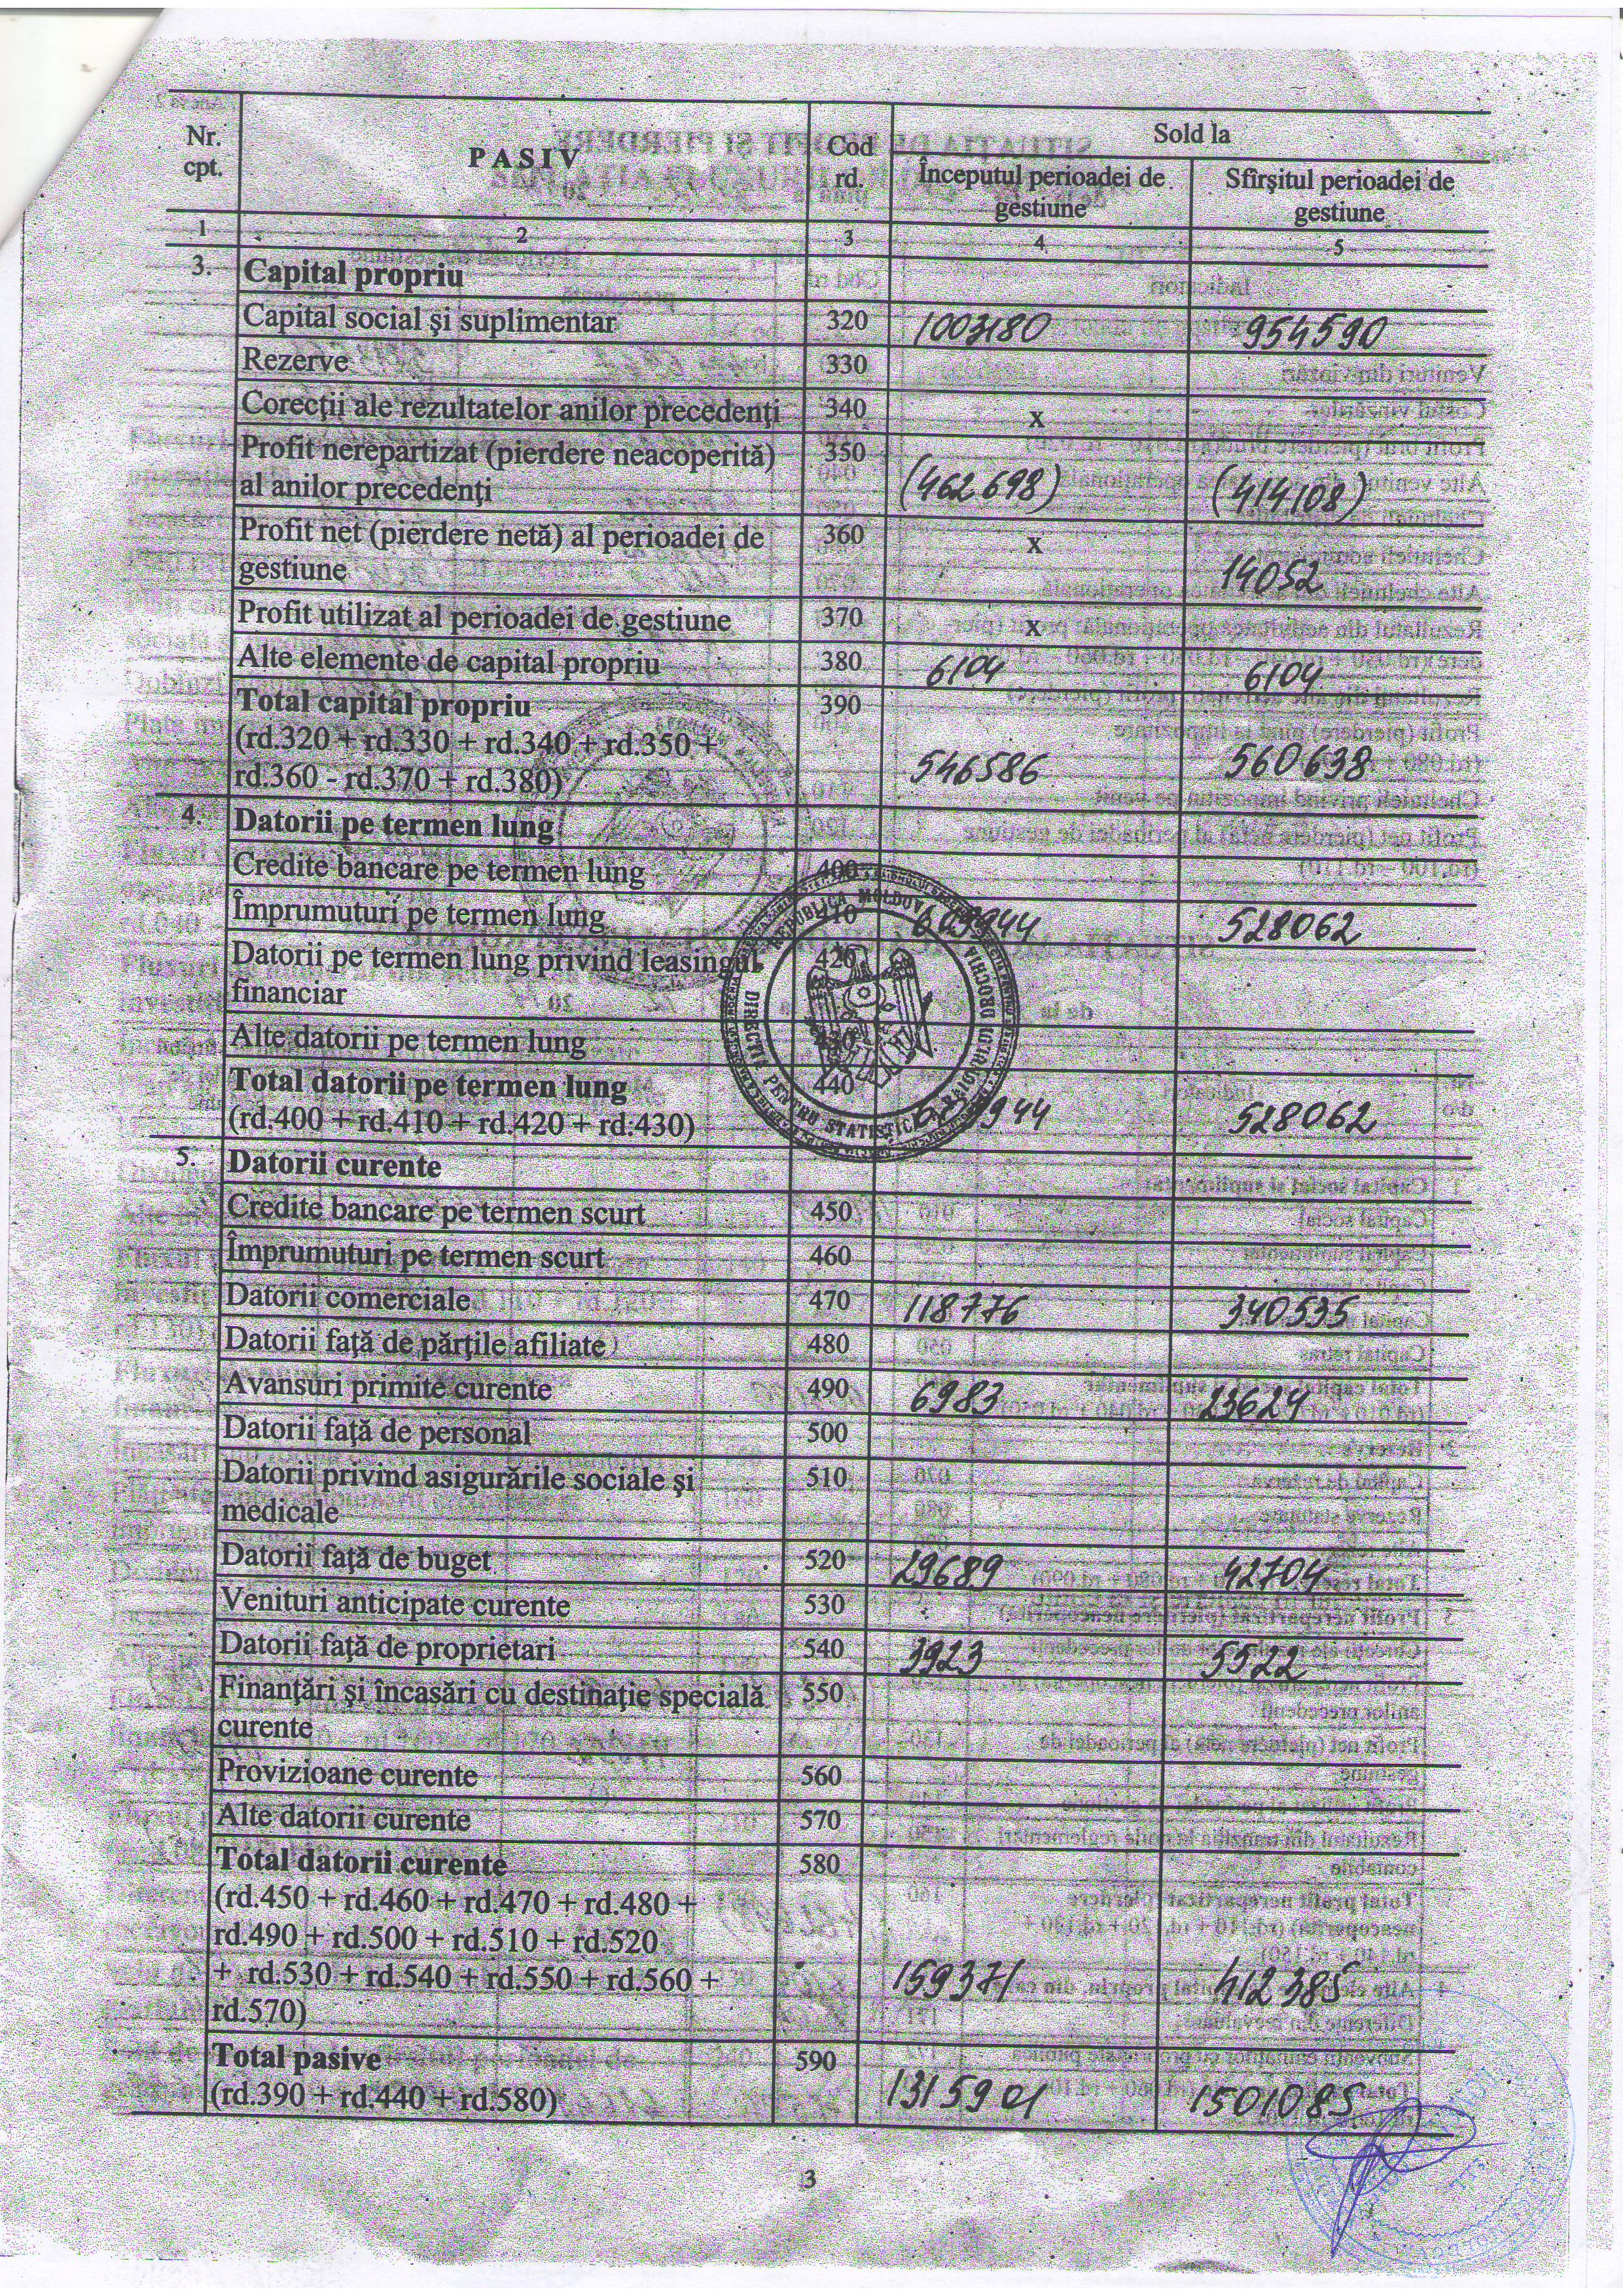 Nr. cpt.
P A S I V
Cod rd.
Sold la
Începutul perioadei de gestiune
Sfîrşitul perioadei de gestiune
1 2 3 4 5
3. Capital propriu
Capital social şi suplimentar 320 1003180 954590
Rezerve 330
Corecţii ale rezultatelor anilor precedenţi 340 x
Profit nerepartizat (pierdere neacoperită) 350
al anilor precedenţi (462 698) (414108)
Profit net (pierdere netă) al perioadei de 360 x
gestiune 14052
Profit utilizat al perioadei de gestiune 370 x
Alte elemente de capital propriu 380 6104 6104
Total capital propriu 390
(rd.320 + rd.330 + rd.340 + rd.350 +
rd.360 - rd.370 + rd.380) 546586 560638
4. Datorii pe termen lung
Credite bancare pe termen lung 400
Împrumuturi pe termen lung 410 609944 528062
Datorii pe termen lung privind leasingul 420
financiar
Alte datorii pe termen lung 430
Total datorii pe termen lung 440
(rd.400 + rd.410 + rd.420 + rd.430) 944 528062
REPUBLICA MOLDOVA
DIRECŢIE PENTRU STATISTICĂ
5. Datorii curente
Credite bancare pe termen scurt 450
Împrumuturi pe termen scurt 460
Datorii comerciale 470 118776 340535
Datorii faţă de părţile afiliate 480
Avansuri primite curente 490 6983 23624
Datorii faţă de personal 500
Datorii privind asigurările sociale şi 510
medicale
Datorii faţă de buget 520 29689 42704
Venituri anticipate curente 530
Datorii faţă de proprietari 540 3923 5522
Finanţări şi încasări cu destinaţie specială 550
curente
Provizioane curente 560
Alte datorii curente 570
Total datorii curente 580
(rd.450 + rd.460 + rd.470 + rd.480 +
rd.490 + rd.500 + rd.510 + rd.520
+ rd.530 + rd.540 + rd.550 + rd.560 +
rd.570) 159371 412385
Total pasive 590
(rd.390 + rd.440 + rd.580) 1315901 1501085
3